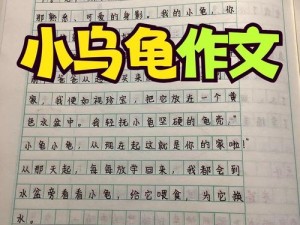 那熟悉、可爱的身影。我的小龟,你
小乌龟作文
家,我便如视珍宝,把它放在一个黄
色水盆中。我轻抚小龟坚硬的龟壳:“
小龟小龟,从现在起这就是你的家啦!”
从那天起,每每放学回来,我都会到
水盆旁看看小龟,给它喂食,为它换
水。